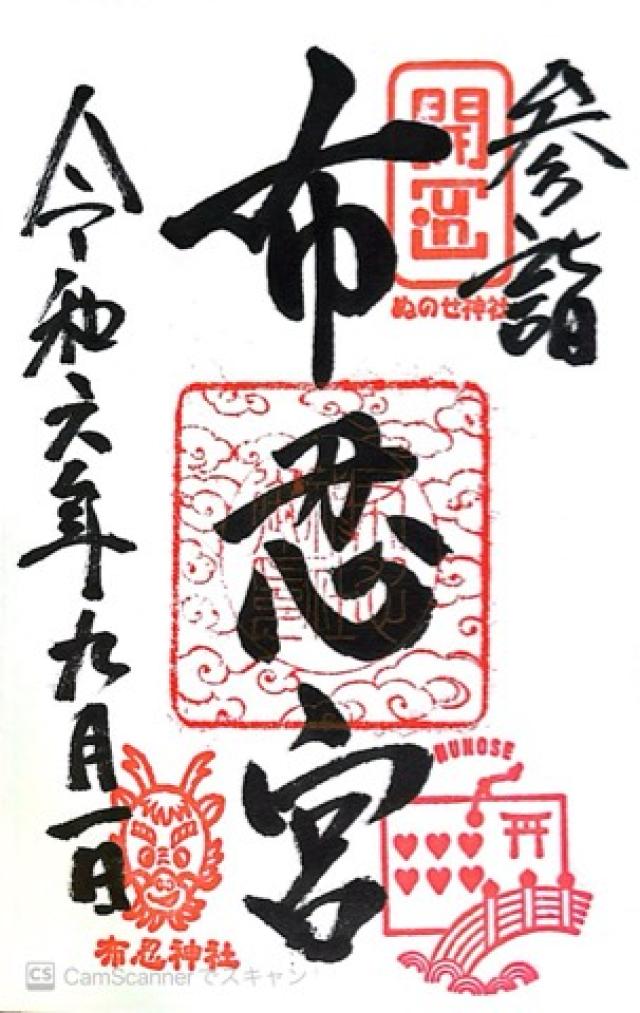 参詣
開運
ぬのせ神社
布忍宮
NUNOSE
令和六年九月一日
布忍神社
CS CamScannerでスキャン